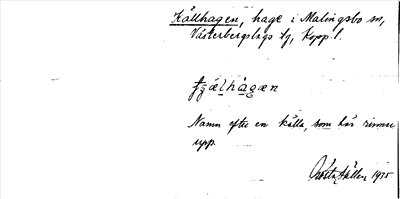 Källhagen, hage i Malingsbo sn,
Västerbergslags tg, Kopp. l.
Namn efter en källa, som här rinner
upp.
Gösta Källen 1915